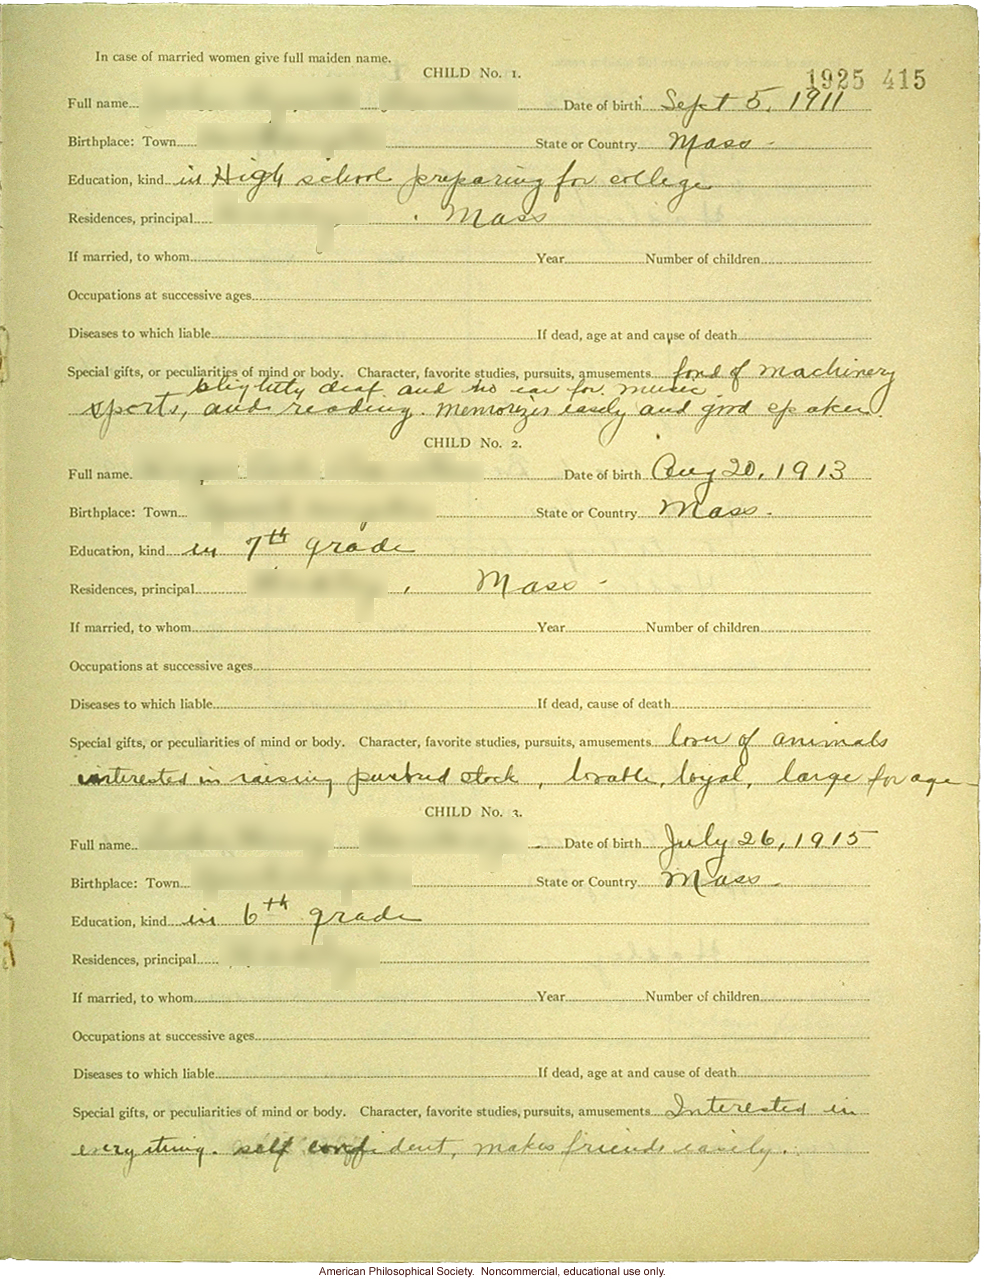 In case of married women give full maiden name.
CHILD No. 1.
1925 415
Full name Date of birth Sept 5, 1911
Birthplace: Town State or Country Mass -
Education, kind in High school preparing for college
Residences, principal Mass
If married, to whom Year Number of children
Occupations at successive ages
Diseases to which liable If dead, age at and cause of death
Special gifts, or peculiarities of mind or body. Character, favorite studies, pursuits, amusements fond of machinery
slightly deaf and no ear for music.
sports, and reading. Memorizes easily and good speaker.
CHILD No. 2.
Full name. Date of birth Aug 20, 1913
Birthplace: Town State or Country Mass.
Education, kind in 7th grade
Residences, principal , Mass -
If married, to whom Year Number of children
Occupations at successive ages
Diseases to which liable If dead, cause of death
Special gifts, or peculiarities of mind or body. Character, favorite studies, pursuits, amusements lover of animals
interested in raising purebred stock, lovable, loyal, large for age -
CHILD No. 3.
Full name Date of birth July 26, 1915
Birthplace: Town State or Country Mass.
Education, kind in 6th grade
Residences, principal
If married, to whom Year Number of children
Occupations at successive ages
Diseases to which liable If dead, age at and cause of death
Special gifts, or peculiarities of mind or body. Character, favorite studies, pursuits, amusements Interested in
everything. self confident, makes friends easily.
American Philosophical Society. Noncommercial, educational use only.